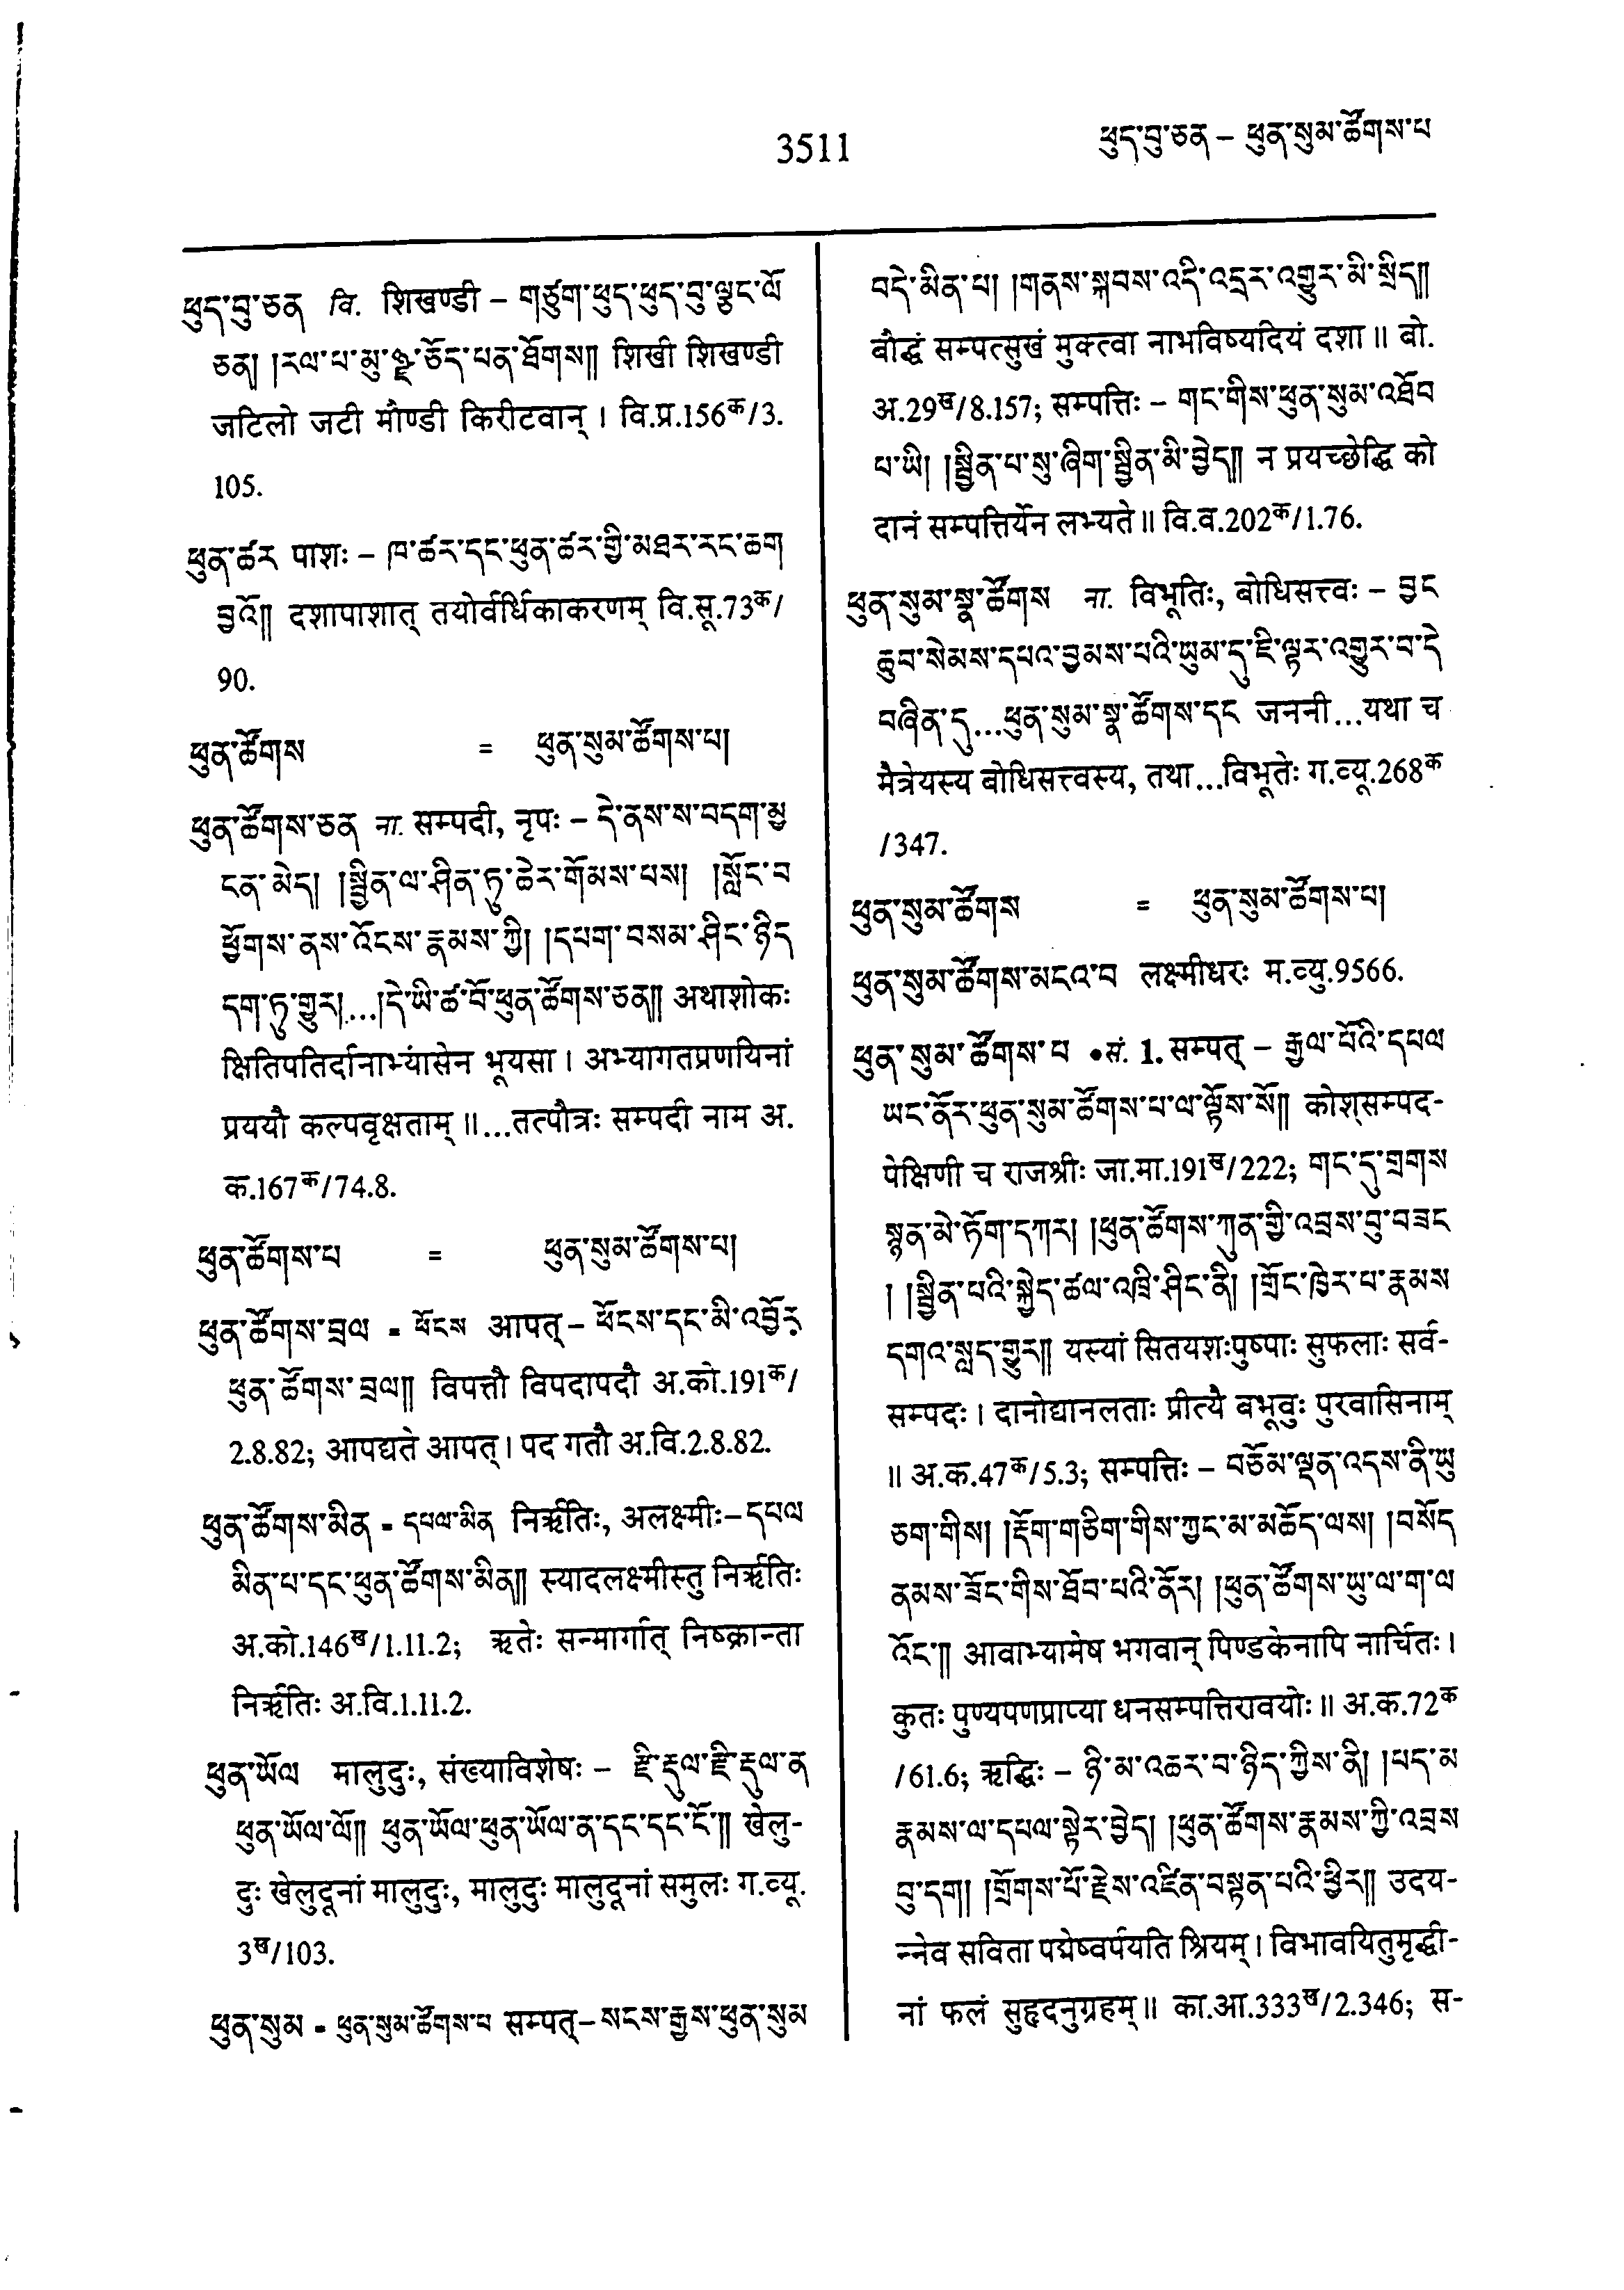 3511
ཕུད་བུ་ཅན – ཕུན་སུམ་ཚོགས་པ
ཕུད་བུ་ཅན वि. शिखण्डी – གཙུག་ཕུད་ཕུད་བུ་ལྕང་ལོ
ཅན། །རལ་པ་མུ་ཎྜ་ཅོད་པན་ཐོགས།། शिखी शिखण्डी
जटिलो जटी मौण्डी किरीटवान् । वि.प्र.156क/3.
105.
ཕུན་ཚར पाशः – ཁ་ཚར་དང་ཕུན་ཚར་གྱི་མཐར་རང་ཆག
བྱའོ།། दशापाशात् तयोर्वर्धिकाकरणम् वि.सू.73क/
90.
ཕུན་ཚོགས = ཕུན་སུམ་ཚོགས་པ།
ཕུན་ཚོགས་ཅན ना. सम्पदी, नृपः – དེ་ནས་ས་བདག་མྱ
ངན་མེད། །སྦྱིན་ལ་ཤིན་ཏུ་ཆེར་གོམས་པས། །སློང་བ
ཕྱོགས་ནས་འོངས་རྣམས་ཀྱི། །དཔག་བསམ་ཤིང་ཉིད
དག་ཏུ་གྱུར།...།དེ་ཡི་ཚ་བོ་ཕུན་ཚོགས་ཅན།། अथाशोकः
क्षितिपतिर्दानाभ्यासेन भूयसा । अभ्यागतप्रणयिनां
प्रययौ कल्पवृक्षताम् ॥...तत्पौत्रः सम्पदी नाम अ.
क.167क/74.8.
ཕུན་ཚོགས་པ = ཕུན་སུམ་ཚོགས་པ།
ཕུན་ཚོགས་བྲལ = ཕོངས आपत् – ཕོངས་དང་མི་འབྱོར་
ཕུན་ཚོགས་བྲལ།། विपत्तौ विपदापदौ अ.को.191क/
2.8.82; आपद्यते आपत् । पद गतौ अ.वि.2.8.82.
ཕུན་ཚོགས་མིན = དཔལ་མིན निर्ऋतिः, अलक्ष्मीः – དཔལ
མིན་པ་དང་ཕུན་ཚོགས་མིན།། स्यादलक्ष्मीस्तु निर्ऋतिः
अ.को.146ख/1.11.2; ऋतेः सन्मार्गात् निष्क्रान्ता
निर्ऋतिः अ.वि.1.11.2.
ཕུན་ཡོལ मालुदुः, संख्याविशेषः – རྫི་ངུལ་རྫི་ངུལ་ན
ཕུན་ཡོལ་ལོ།། ཕུན་ཡོལ་ཕུན་ཡོལ་ན་དང་དང་ངོ་།། खेलु-
दुः खेलुदूनां मालुदुः, मालुदुः मालुदूनां समुलः ग.व्यू.
3ख/103.
ཕུན་སུམ = ཕུན་སུམ་ཚོགས་པ सम्पत् – སངས་རྒྱས་ཕུན་སུམ
བདེ་མིན་པ། །གནས་སྐབས་འདི་འདྲར་འགྱུར་མི་སྲིད།།
बौद्धं सम्पत्सुखं मुक्त्वा नाभविष्यदियं दशा ॥ बो.
अ.29ख/8.157; सम्पत्तिः – གང་གིས་ཕུན་སུམ་འཐོབ
པ་ཡི། །སྦྱིན་པ་སུ་ཞིག་སྦྱིན་མི་བྱེད།། न प्रयच्छेद्धि को
दानं सम्पत्तिर्येन लभ्यते ॥ वि.व.202क/1.76.
ཕུན་སུམ་སྣ་ཚོགས ना. विभूतिः, बोधिसत्त्वः – བྱང
ཆུབ་སེམས་དཔའ་བྱམས་པའི་ཡུམ་དུ་ཇི་ལྟར་འགྱུར་བ་དེ
བཞིན་དུ...ཕུན་སུམ་སྣ་ཚོགས་དང जननी...यथा च
मैत्रेयस्य बोधिसत्त्वस्य, तथा...विभूतेः ग.व्यू.268क
/347.
ཕུན་སུམ་ཚོགས = ཕུན་སུམ་ཚོགས་པ།
ཕུན་སུམ་ཚོགས་མངའ་བ लक्ष्मीधरः म.व्यु.9566.
ཕུན་སུམ་ཚོགས་པ •सं. 1. सम्पत् – རྒྱལ་པོའི་དཔལ
ཡང་ནོར་ཕུན་སུམ་ཚོགས་པ་ལ་ལྟོས་སོ།། कोश्सम्पद-
पेक्षिणी च राजश्रीः जा.मा.191ख/222; གང་དུ་གྲགས
སྙན་མེ་ཏོག་དཀར། །ཕུན་ཚོགས་ཀུན་གྱི་འབྲས་བུ་བཟང
། །སྦྱིན་པའི་སྐྱེད་ཚལ་འཁྲི་ཤིང་ནི། །གྲོང་ཁྱེར་པ་རྣམས
དགའ་སླད་གྱུར།། यस्यां सितयशःपुष्पाः सुफलाः सर्व-
सम्पदः । दानोद्यानलताः प्रीत्यै बभूवुः पुरवासिनाम्
॥ अ.क.47क/5.3; सम्पत्तिः – བཅོམ་ལྡན་འདས་ནི་ཡུ
ཅག་གིས། །རྡོག་གཅིག་གིས་ཀྱང་མ་མཆོད་ལས། །བསོད
ནམས་ཟོང་གིས་ཐོབ་པའི་ནོར། །ཕུན་ཚོགས་ཡུ་ལ་ག་ལ
འོང་།། आवाभ्यामेष भगवान् पिण्डकेनापि नार्चितः ।
कुतः पुण्यपणप्राप्या धनसम्पत्तिरावयोः ॥ अ.क.72क
/61.6; ऋद्धिः – ཉི་མ་འཆར་བ་ཉིད་ཀྱིས་ནི། །པད་མ
རྣམས་ལ་དཔལ་སྟེར་བྱེད། །ཕུན་ཚོགས་རྣམས་ཀྱི་འབྲས
བུ་དག། །གྲོགས་པོ་རྗེས་འཛིན་བསྟན་པའི་ཕྱིར།། उदय-
न्नेव सविता पद्मेष्वर्पयति श्रियम् । विभावयितुमृद्धी-
नां फलं सुहृदनुग्रहम् ॥ का.आ.333ख/2.346; स-